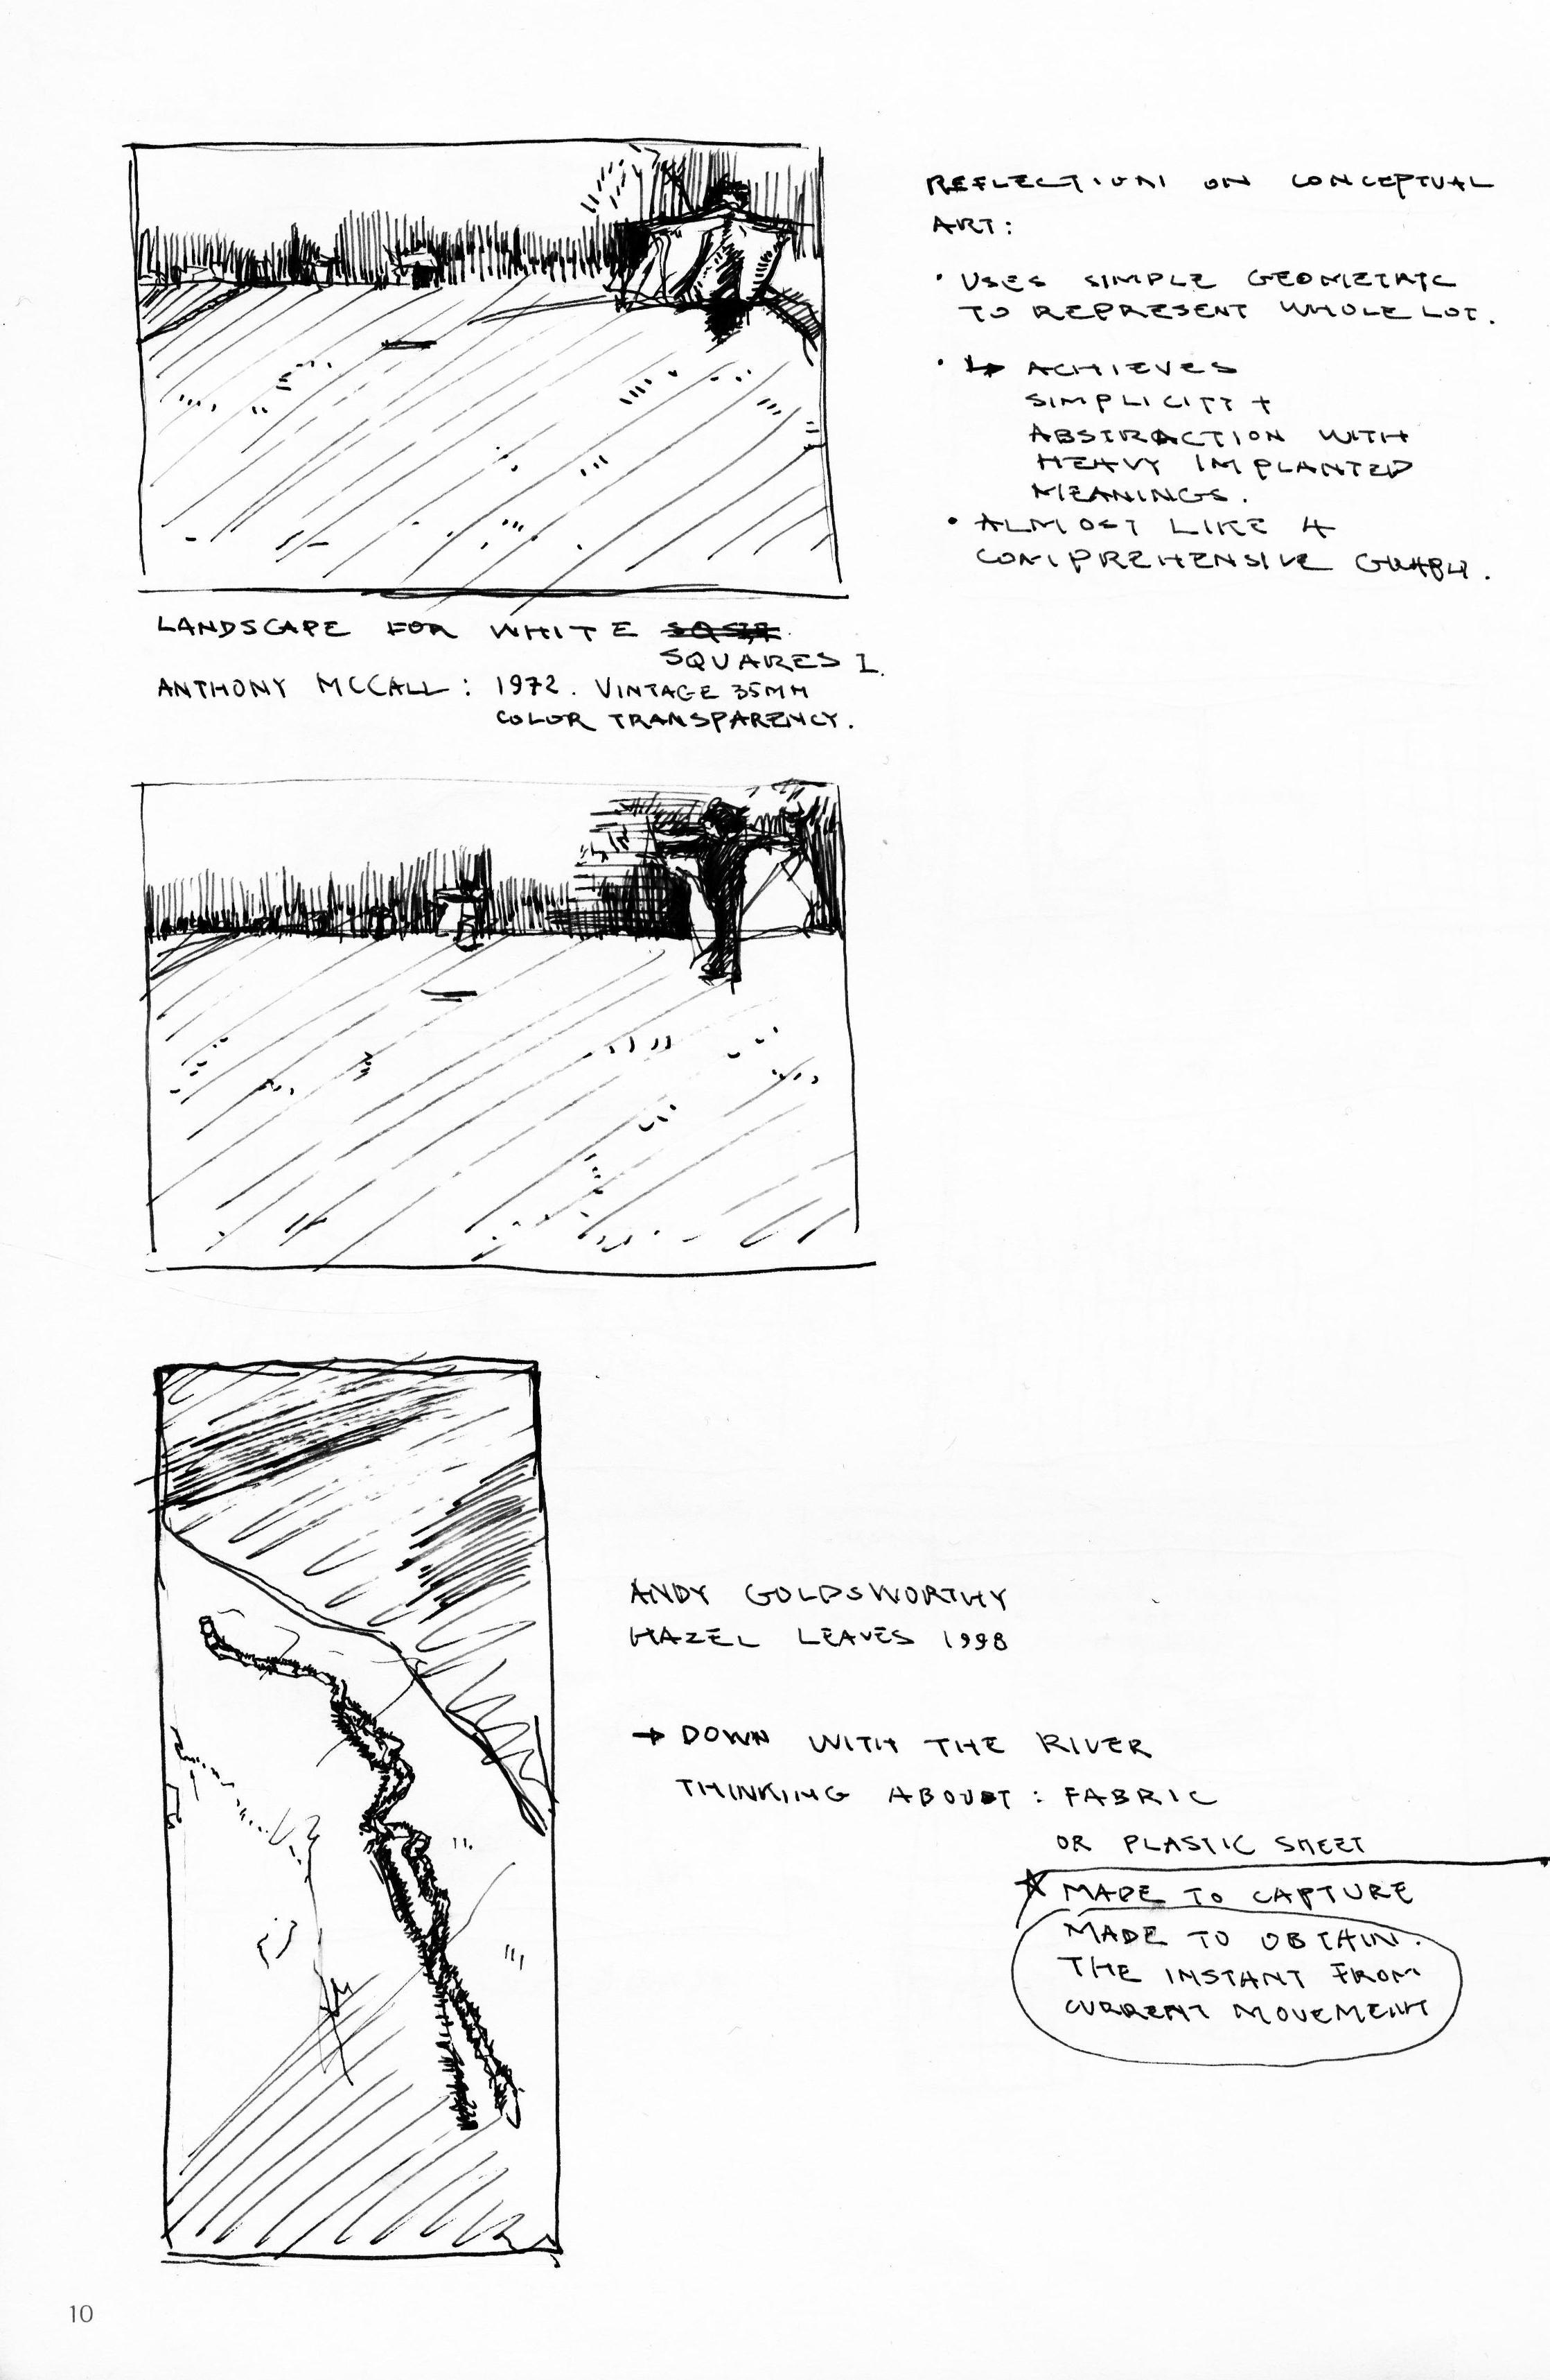 REFLECTION ON CONCEPTUAL
ART:
• USES SIMPLE GEOMETRIC
TO REPRESENT WHOLE LOT.
• ↳ ACHIEVES
SIMPLICITY +
ABSTRACTION WITH
HEAVY IMPLANTED
MEANINGS.
• ALMOST LIKE A
COMPREHENSIVE
LANDSCAPE FOR WHITE
SQUARES I.
ANTHONY MCCALL: 1972. VINTAGE 35MM
COLOR TRANSPARENCY.
ANDY GOLDSWORTHY
HAZEL LEAVES 1998
→ DOWN WITH THE RIVER
THINKING ABOUT: FABRIC
OR PLASTIC SHEET
☆ MADE TO CAPTURE
MADE TO OBTAIN.
THE INSTANT FROM
CURRENT MOVEMENT
10